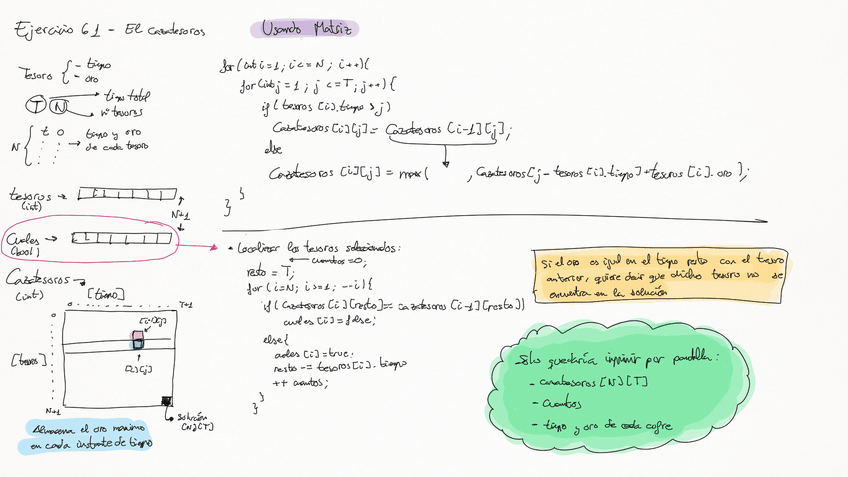 Ejercicio 61 - El cazatesoros
Usando Matriz
Tesoro { - tiempo
- oro
T → tiempo total
N → nº tesoros
N { t o → tiempo y oro
de cada tesoro
tesoros →
(int)
N+1
cuales →
(bool)
Cazatesoros →
(int)
[tiempo]
0 T+1
0
[i-1][j]
[tesoros]
[i][j]
N+1
solución
[N][T]
Almacena el oro máximo
en cada instante de tiempo
for (int i=1; i<=N; i++){
for (int j=1; j<=T; j++){
if (tesoros[i].tiempo > j)
Cazatesoros[i][j] = Cazatesoros[i-1][j];
else
Cazatesoros[i][j] = max( , Cazatesoros[j - tesoros[i].tiempo] + tesoros[i].oro);
}
}
• Localizar los tesoros seleccionados:
cuantos=0;
resto = T;
for (i=N; i>=1; --i){
if (cazatesoros[i][resto] == cazatesoros[i-1][resto])
cuales[i]=false;
else{
cuales[i]=true;
resto -= tesoros[i].tiempo
++ cuantos;
}
}
Si el oro es igual en el tiempo resto con el tesoro
anterior, quiere decir que dicho tesoro no se
encuentra en la solución
Sólo quedaría imprimir por pantalla:
- cazatesoros[N][T]
- cuantos
- tiempo y oro de cada cofre